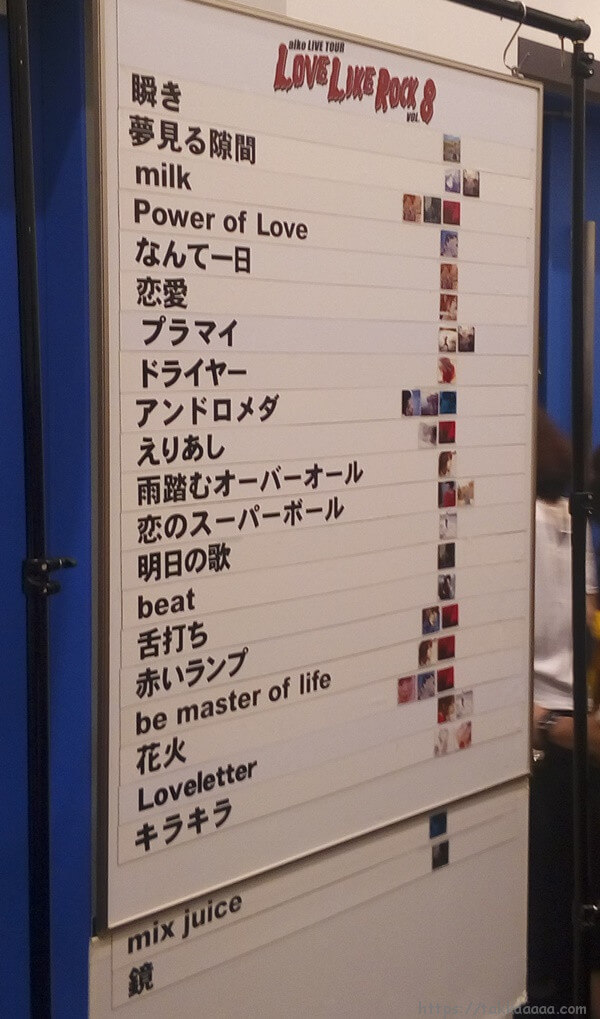 aiko LIVE TOUR
LOVE LIKE ROCK 8
VOL.
瞬き
夢見る隙間
milk
Power of Love
なんて一日
恋愛
プラマイ
ドライヤー
アンドロメダ
えりあし
雨踏むオーバーオール
恋のスーパーボール
明日の歌
beat
舌打ち
赤いランプ
be master of life
花火
Loveletter
キラキラ
mix juice
鏡